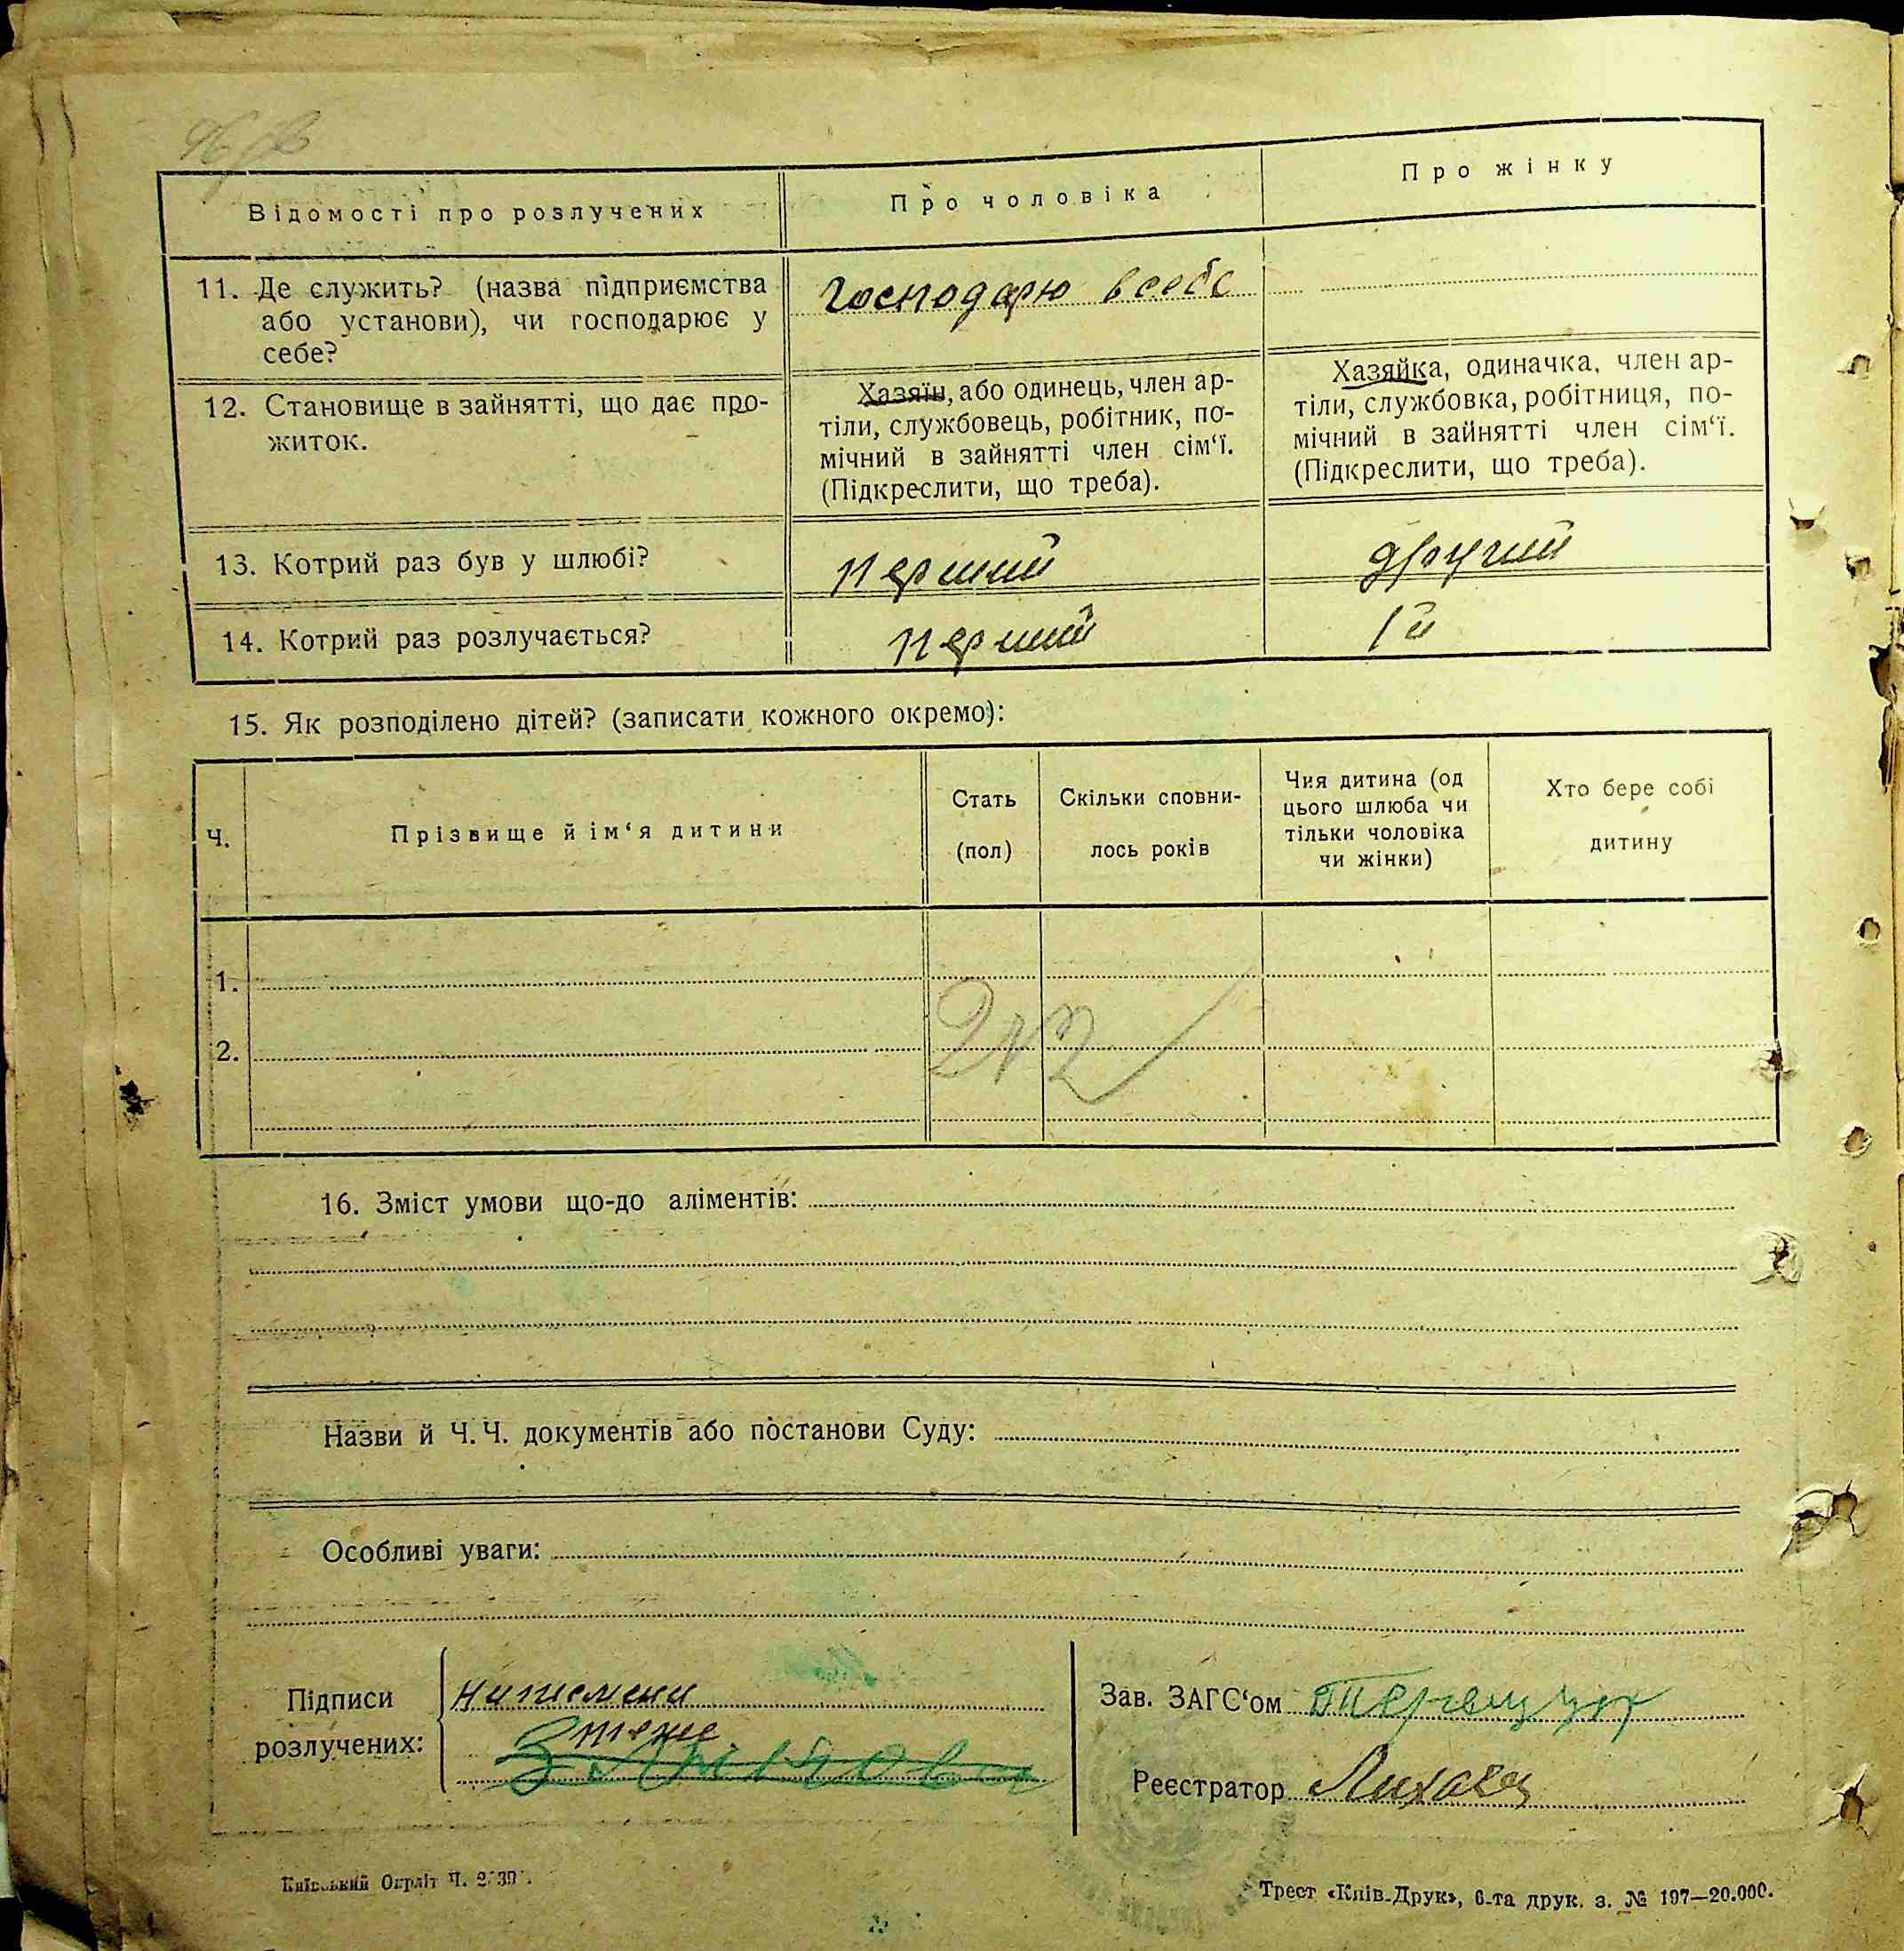 Відомості про розлучених
Про чоловіка
Про жінку
11. Де служить? (назва підприємства
або установи), чи господарює у
себе?
господарю в себе
12. Становище в зайнятті, що дає про-
житок.
Хазяїн, або одинець, член ар-
тіли, службовець, робітник, по-
мічний в зайнятті член сім‘ї.
(Підкреслити, що треба).
Хазяйка, одиначка, член ар-
тіли, службовка, робітниця, по-
мічний в зайнятті член сім‘ї.
(Підкреслити, що треба).
13. Котрий раз був у шлюбі?
перший
другий
14. Котрий раз розлучається?
перший
1й
15. Як розподілено дітей? (записати кожного окремо):
Ч.
Прізвище й ім‘я дитини
Стать
(пол)
Скільки сповни-
лось років
Чия дитина (од
цього шлюба чи
тільки чоловіка
чи жінки)
Хто бере собі
дитину
1.
2.
16. Зміст умови що-до аліментів:
Назви й Ч.Ч. документів або постанови Суду:
Особливі уваги:
Підписи
розлучених:
неписмени
теже
Зав. ЗАГС‘ом
Реєстратор
Київський Окрліт Ч.
Трест «Київ-Друк», 6-та друк. з. № 197—20.000.